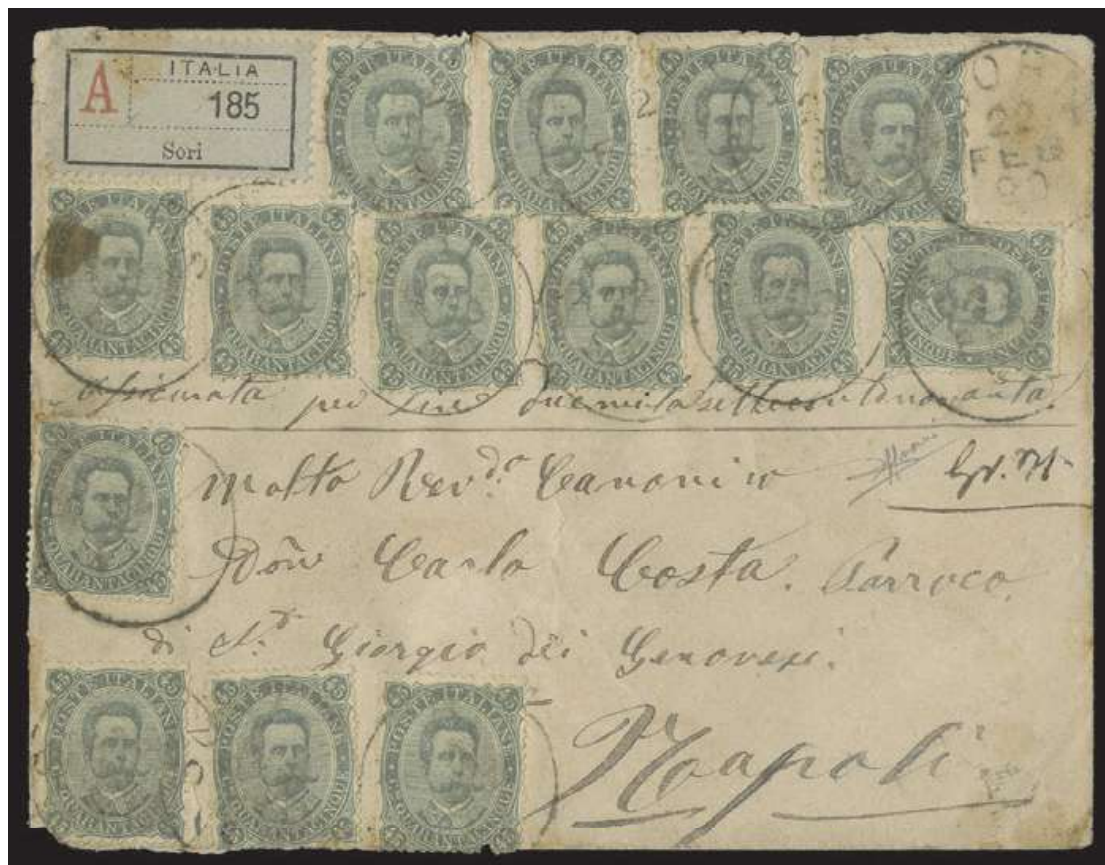 A
ITALIA
185
Sori
45 POSTE ITALIANE 45
C. QUARANTACINQUE
22
FEB
Assicurata per Lire duemilasettecentonovanta.
Molto Rev.do Canonico
Don Carlo Costa. Parroco
di S. Giorgio dei Genovesi.
Napoli